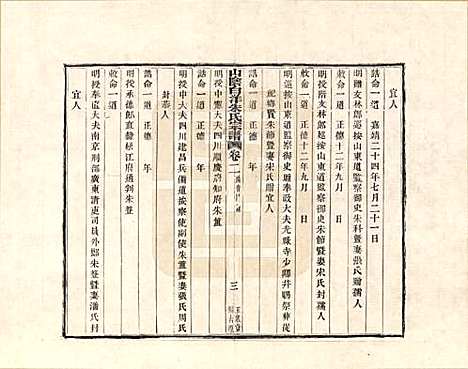 宜人
誥命一道　嘉靖二十四年七月二十一日
明贈文林郎巡按山東道監察御史朱科暨妻張氏贈孺人
敕命一道　正德十二年九月　日
明授文林郎巡按山東道監察御史朱節暨妻宋氏封孺人
敕命一道　正德十二年九月　日
明巡按山東道監察御史贈奉政大夫光祿寺少卿幷賜祭葬從
祀鄉賢朱節暨妻宋氏贈宜人
誥命一道　正德　年
山陰白洋朱氏宗譜
卷二
三
明授中憲大夫四川順慶府知府朱簠
誥命一道　正德　年
明授中大夫四川建昌兵備道按察使司副使朱簠暨妻張氏周氏
封恭人
誥命一道　正德　年
明授承德郎直隸松江府通判朱簦
敕命一道
明授奉直大夫南京刑部廣東清吏司員外郎朱簦暨妻潘氏封
宜人